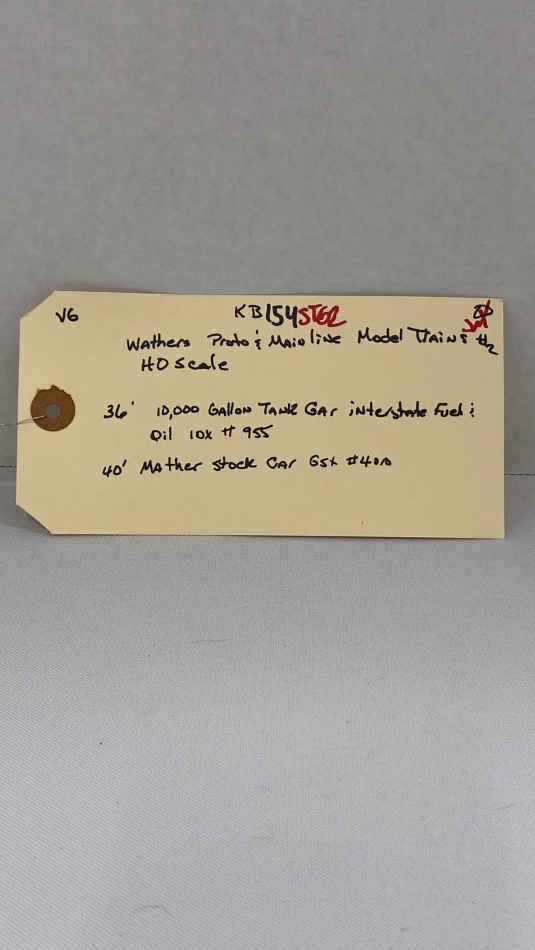 VG KB154STG2
Wathers Proto & Mainline Model Trains #2
HO Scale
36' 10,000 Gallon Tank Car interstate Fuel &
Oil IOX # 955
40' Mather Stock Car GSX #4010